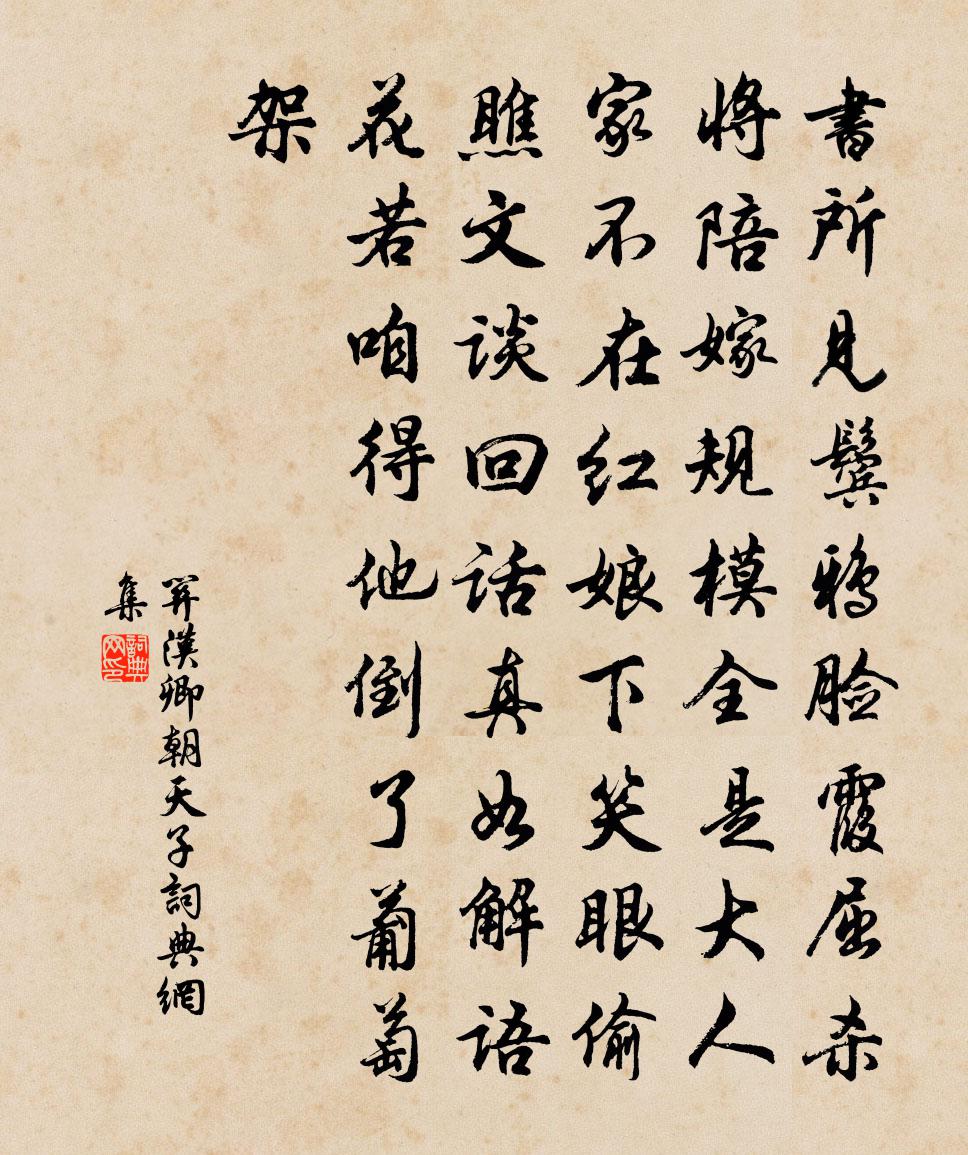 書所见鬓鸦脸霞屈杀
将陪嫁规模全是大人
家不在红娘下笑眼偷
瞧文谈回话真如解语
花若咱得他倒了葡萄
架
關漢卿朝天子詞典網
集
詞典
网印